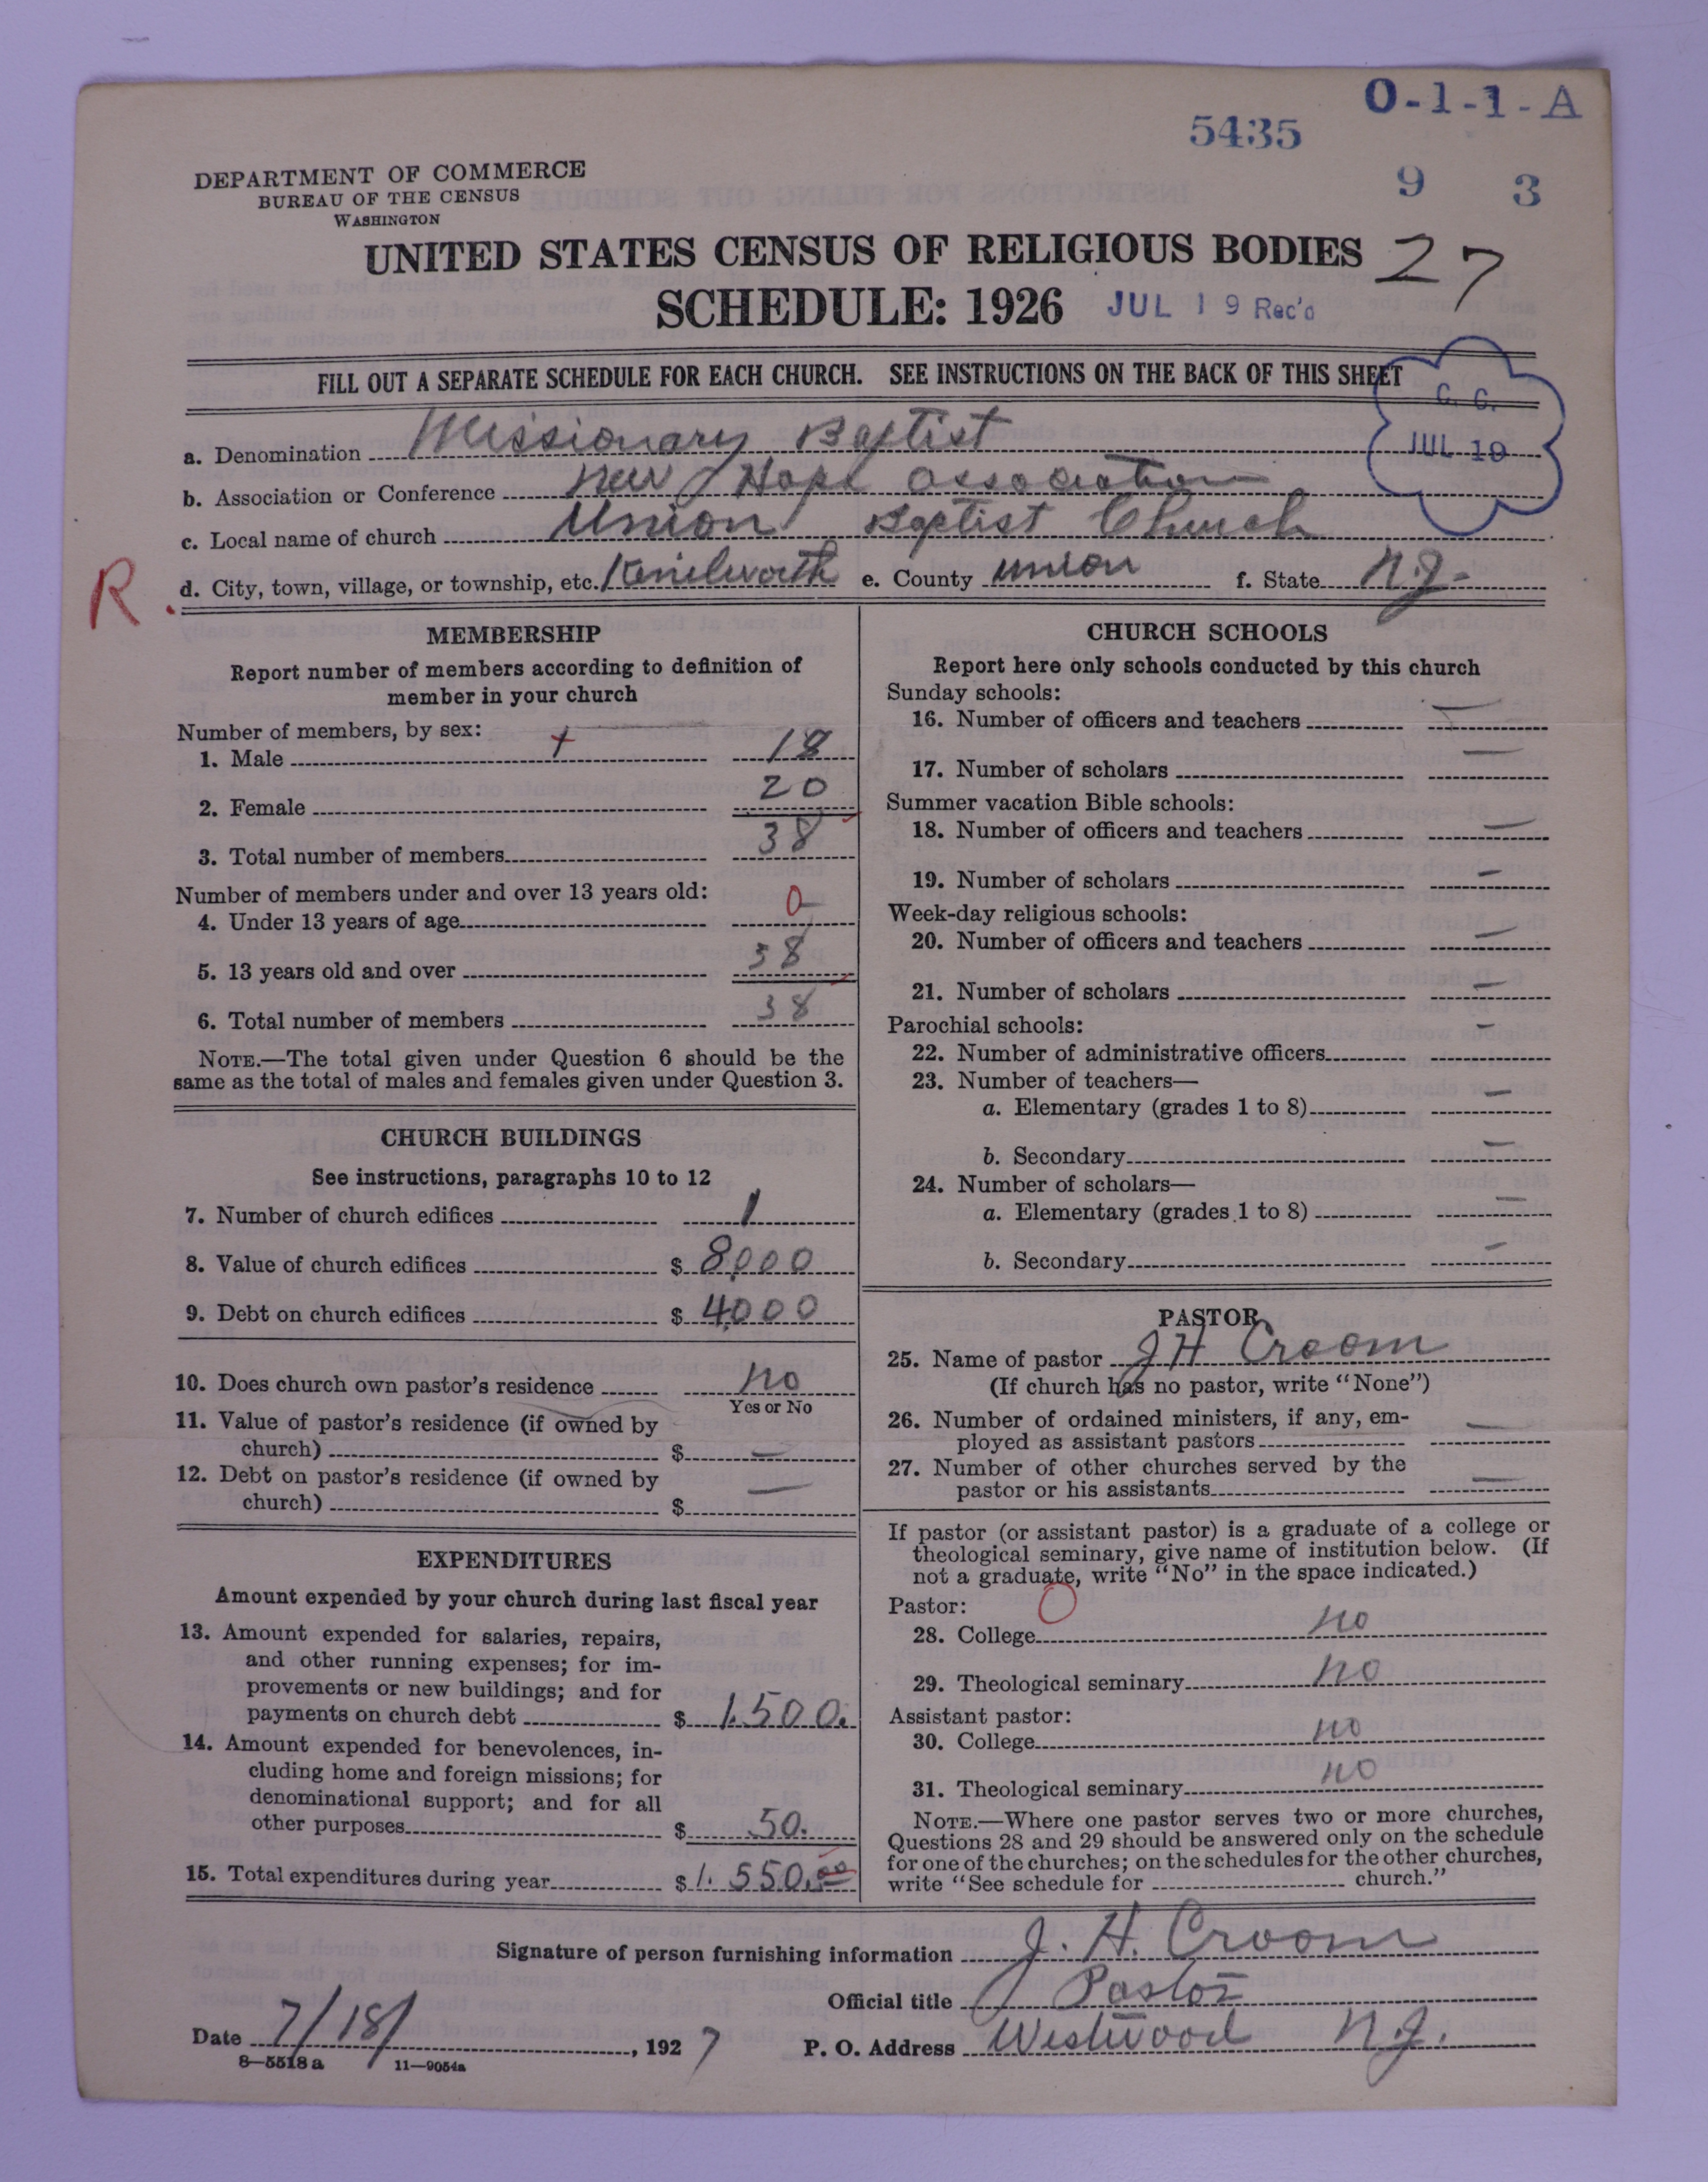 O-1-1-A
5435
9 3
DEPARTMENT OF COMMERCE
BUREAU OF THE CENSUS
WASHINGTON
UNITED STATES CENSUS OF RELIGIOUS BODIES 27
SCHEDULE: 1926 JUL 19 Rec'd
FILL OUT A SEPARATE SCHEDULE FOR EACH CHURCH. SEE INSTRUCTIONS ON THE BACK OF THIS SHEET
C. C.
JUL 19
a. Denomination Missionary Baptist
b. Association or Conference New Hope Association
c. Local name of church Union Baptist Church
R. d. City, town, village, or township, etc. Kenilworth e. County Union f. State N.J.
MEMBERSHIP
Report number of members according to definition of
member in your church
Number of members, by sex:
1. Male + 18
2. Female 20
3. Total number of members 38
Number of members under and over 13 years old:
4. Under 13 years of age 0
5. 13 years old and over 38
6. Total number of members 38
NOTE.—The total given under Question 6 should be the
same as the total of males and females given under Question 3.
CHURCH BUILDINGS
See instructions, paragraphs 10 to 12
7. Number of church edifices 1
8. Value of church edifices $ 8000
9. Debt on church edifices $ 4000
10. Does church own pastor's residence no
Yes or No
11. Value of pastor's residence (if owned by
church) $ —
12. Debt on pastor's residence (if owned by
church) $ —
EXPENDITURES
Amount expended by your church during last fiscal year
13. Amount expended for salaries, repairs,
and other running expenses; for im-
provements or new buildings; and for
payments on church debt $ 1.500.
14. Amount expended for benevolences, in-
cluding home and foreign missions; for
denominational support; and for all
other purposes $ 50.
15. Total expenditures during year $ 1.550.00
CHURCH SCHOOLS
Report here only schools conducted by this church
Sunday schools:
16. Number of officers and teachers —
17. Number of scholars —
Summer vacation Bible schools:
18. Number of officers and teachers —
19. Number of scholars —
Week-day religious schools:
20. Number of officers and teachers —
21. Number of scholars —
Parochial schools:
22. Number of administrative officers —
23. Number of teachers—
a. Elementary (grades 1 to 8) —
b. Secondary —
24. Number of scholars—
a. Elementary (grades 1 to 8) —
b. Secondary —
PASTOR
25. Name of pastor J H Croom
(If church has no pastor, write "None")
26. Number of ordained ministers, if any, em-
ployed as assistant pastors —
27. Number of other churches served by the
pastor or his assistants —
If pastor (or assistant pastor) is a graduate of a college or
theological seminary, give name of institution below. (If
not a graduate, write "No" in the space indicated.)
Pastor: 0
28. College no
29. Theological seminary no
Assistant pastor:
30. College no
31. Theological seminary no
NOTE.—Where one pastor serves two or more churches,
Questions 28 and 29 should be answered only on the schedule
for one of the churches; on the schedules for the other churches,
write "See schedule for church."
Signature of person furnishing information J. H. Croom
Official title Pastor
Date 7/18/, 1927 P. O. Address Westwood N.J.
8—5518 a 11—9054a